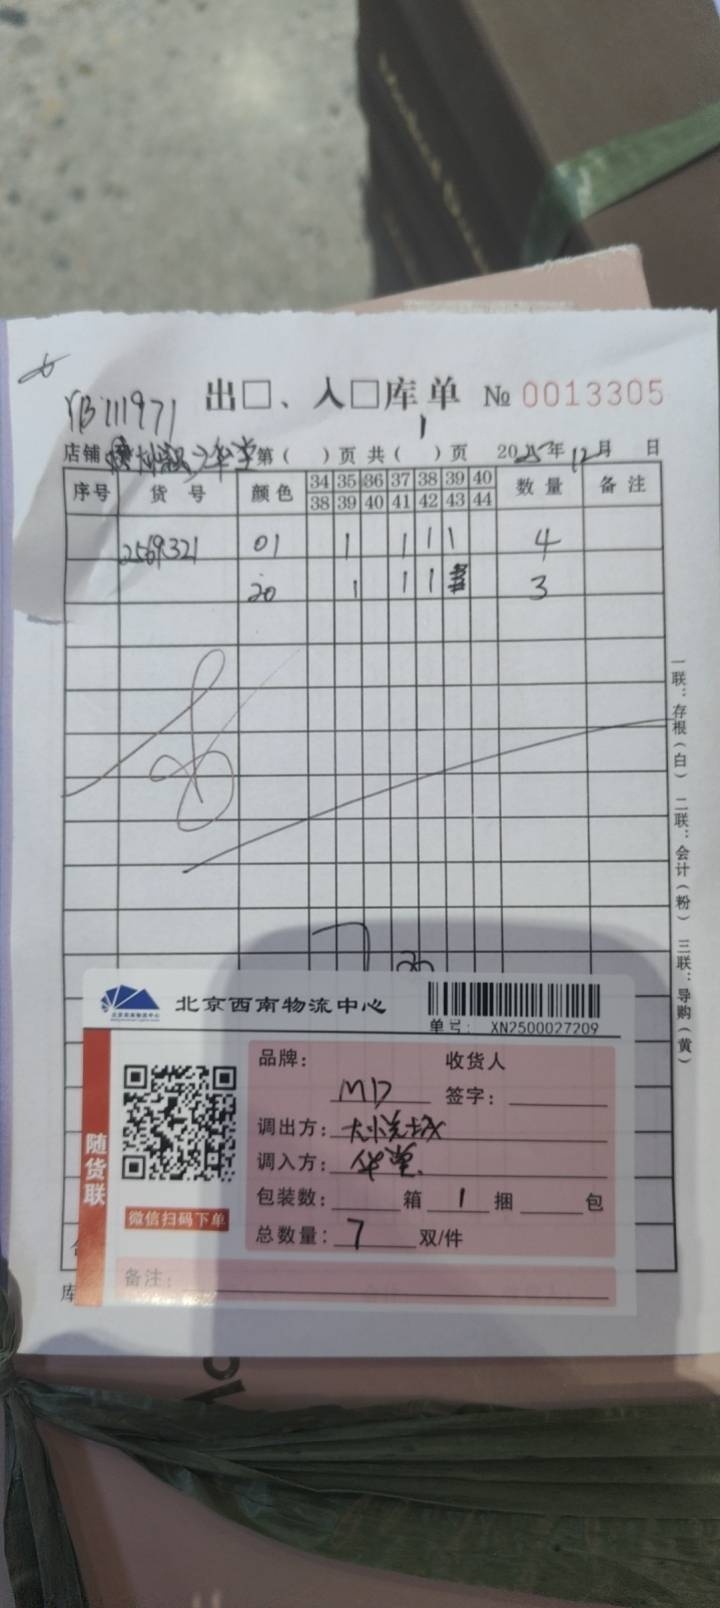 YB111971
出□、入□库单 № 0013305
店铺 华堂 第( )页 共( 1 )页 2025年12月 日
序号 货号 颜色 34 35 36 37 38 39 40 数量 备注
38 39 40 41 42 43 44
2569321 01 1 1 1 1 4
20 1 1 1 3
一联:存根(白) 二联:会计(粉) 三联:导购(黄)
7
北京西南物流中心
单号: XN2500027209
随货联
微信扫码下单
品牌: MD 收货人
签字:
调出方: 大悦城
调入方: 华堂
包装数: 箱 1 捆 包
总数量: 7 双/件
备注:
库